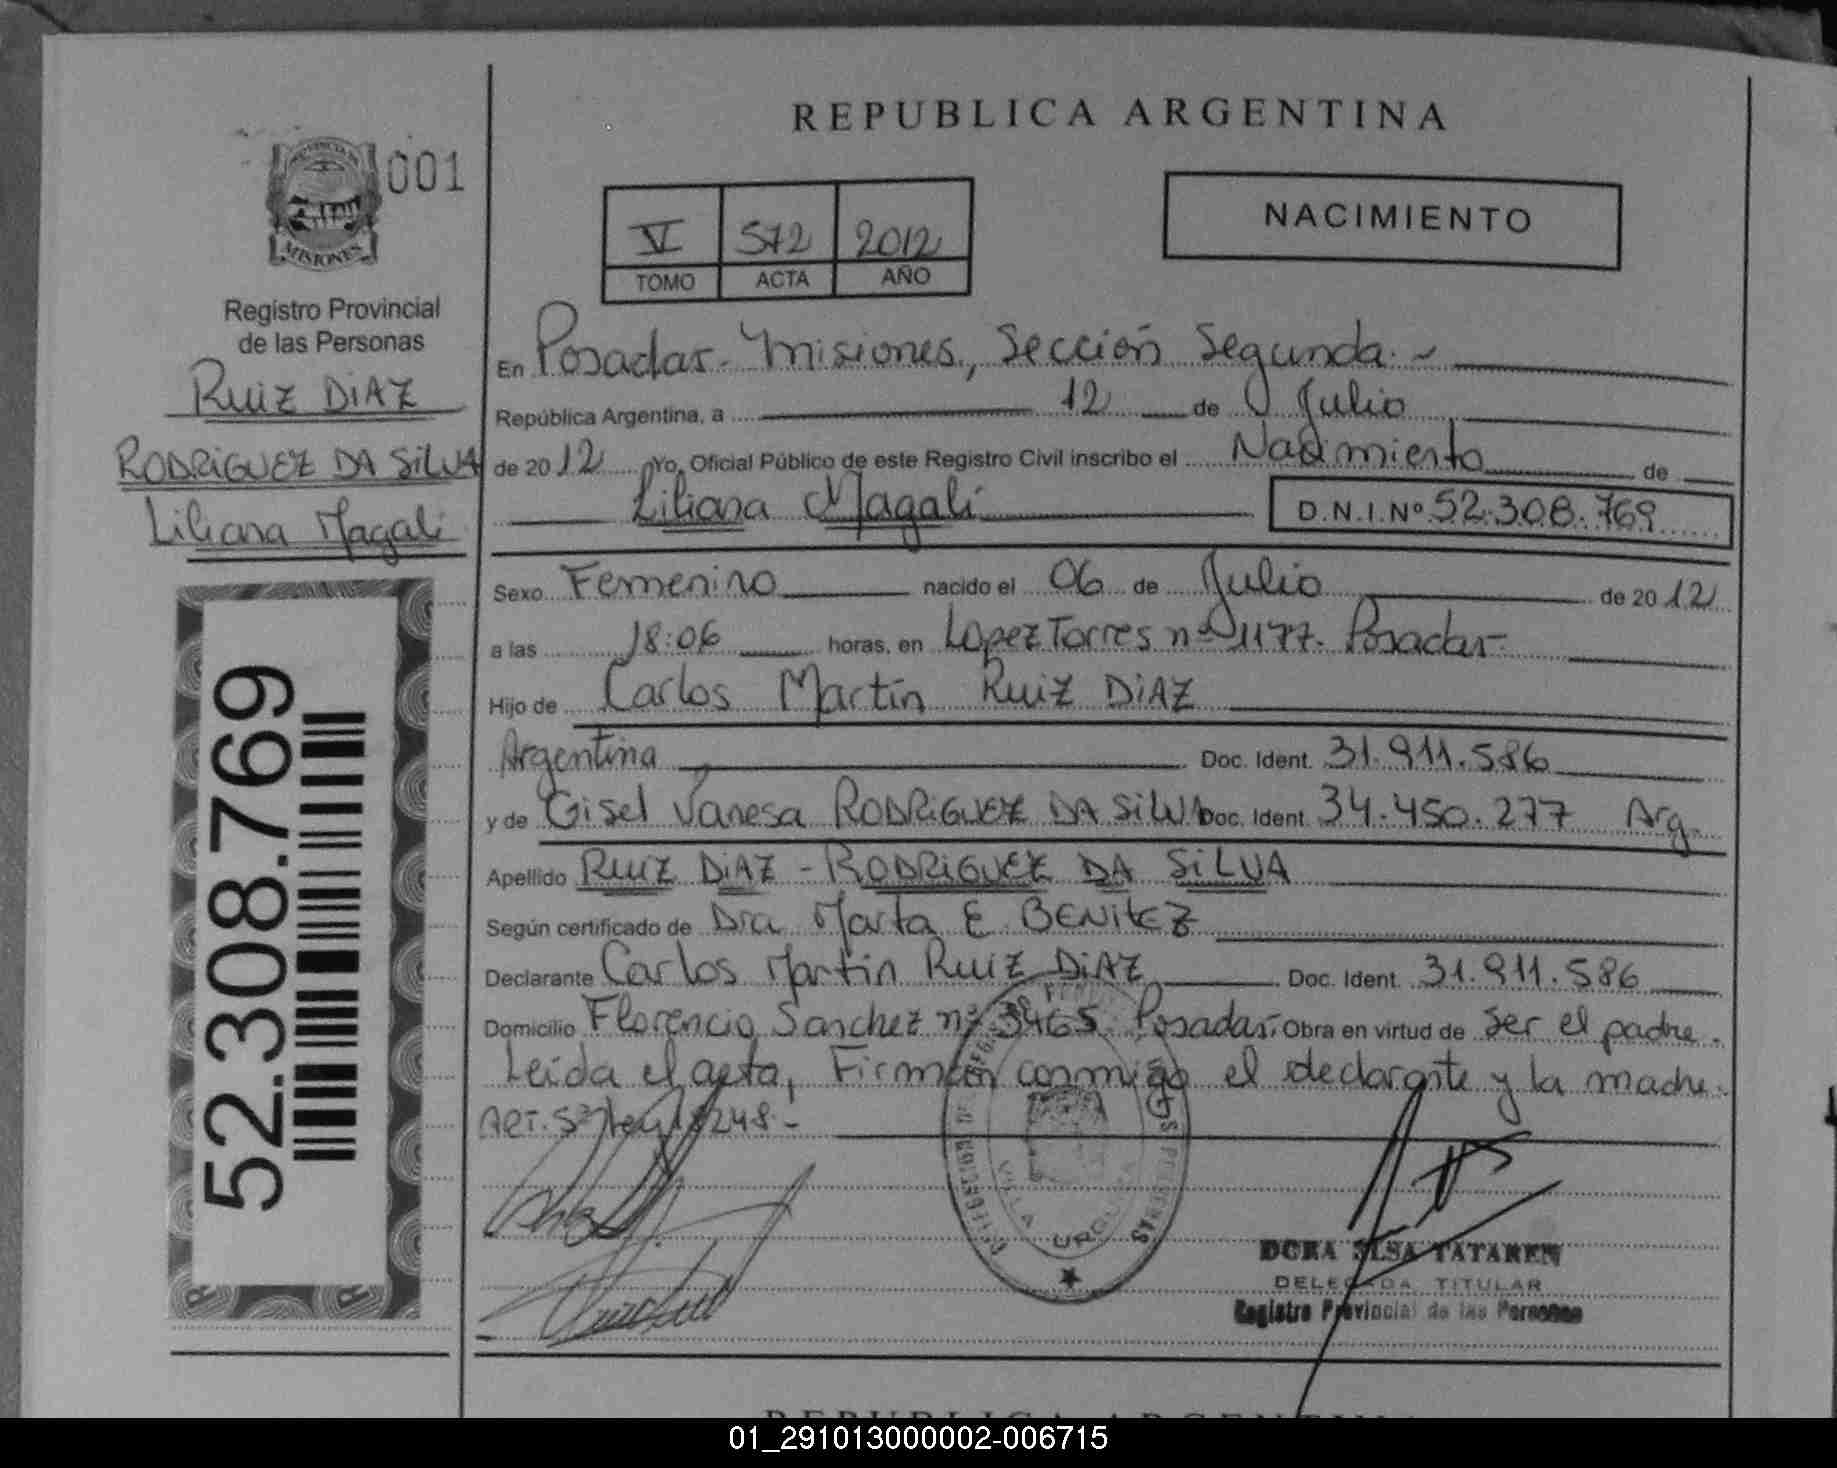 REPUBLICA ARGENTINA
PROVINCIA DE
MISIONES
001
Registro Provincial
de las Personas
RUIZ DIAZ
RODRIGUEZ DA SILVA
Liliana Magali
52.308.769
VI 572 2012
TOMO ACTA AÑO
NACIMIENTO
En Posadas - Misiones, Sección Segunda. -
República Argentina, a 12 de Julio
de 2012 Yo, Oficial Público de este Registro Civil inscribo el Nacimiento de
Liliana Magalí D.N.I.Nº 52.308.769
Sexo Femenino nacido el 06 de Julio de 2012
a las 18:06 horas, en Lopez Torres nº 1177. Posadas-
Hijo de Carlos Martín RUIZ DIAZ
Argentina Doc. Ident. 31.911.586
y de Gisel Vanesa RODRIGUEZ DA SILVA Doc. Ident. 34.450.277 Arg.
Apellido RUIZ DIAZ - RODRIGUEZ DA SILVA
Según certificado de Dra Marta E. BENITEZ
Declarante Carlos Martín RUIZ DIAZ Doc. Ident. 31.911.586
Domicilio Florencio Sanchez nº 3465 Posadas. Obra en virtud de ser el padre.
Leida el acta, Firman conmigo el declarante y la madre.
Art. 5º ley 18248.-
VILLA URQUIZA
DELEGADA TITULAR
Registro Provincial de las Personas
REPUBLICA ARGENTINA
01_291013000002-006715